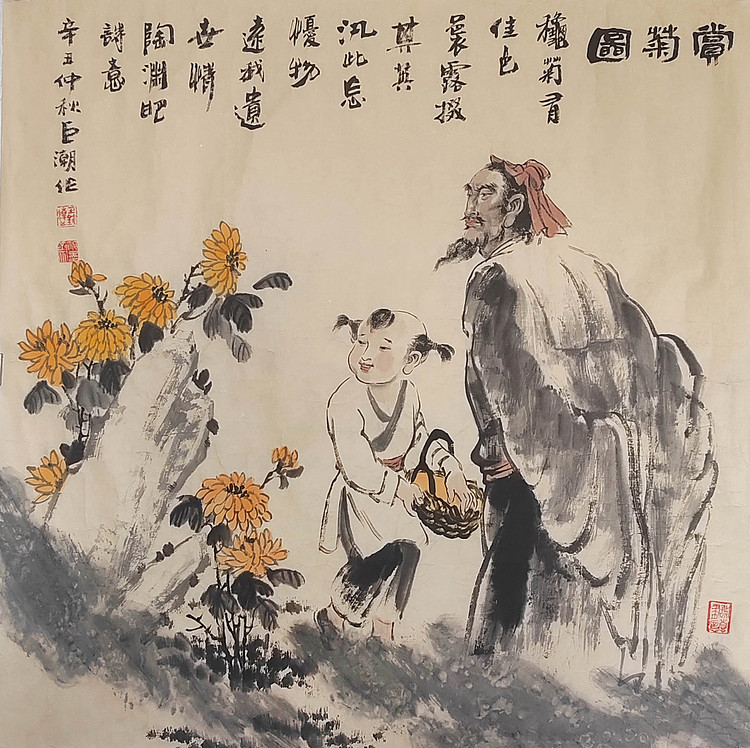 賞菊圖
龝菊有
佳色
裛露掇
其英
汎此忘
懮物
遠我遺
世情
陶淵明
詩意
辛丑仲秋巨潮作